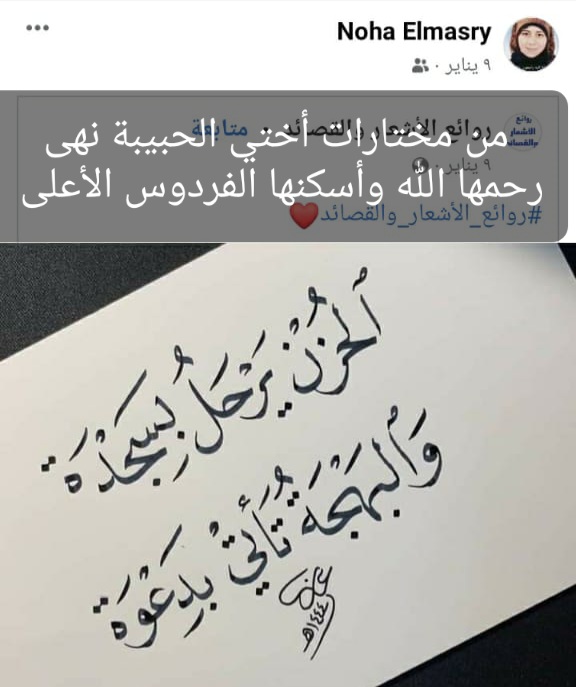 Noha Elmasry
٩ يناير ·
روائع الأشعار والقصائد · متابعة
روائع الأشعار والقصائد
٩ يناير ·
من مختارات أختي الحبيبة نهى
رحمها الله وأسكنها الفردوس الأعلى
#روائع_الأشعار_والقصائد❤️
اَلْحُزْنُ يَرْحَلُ بِسَجْدَة
وَالْبَهْجَةُ تَأْتِيْ بِدَعْوَة
١٤٤٤هـ